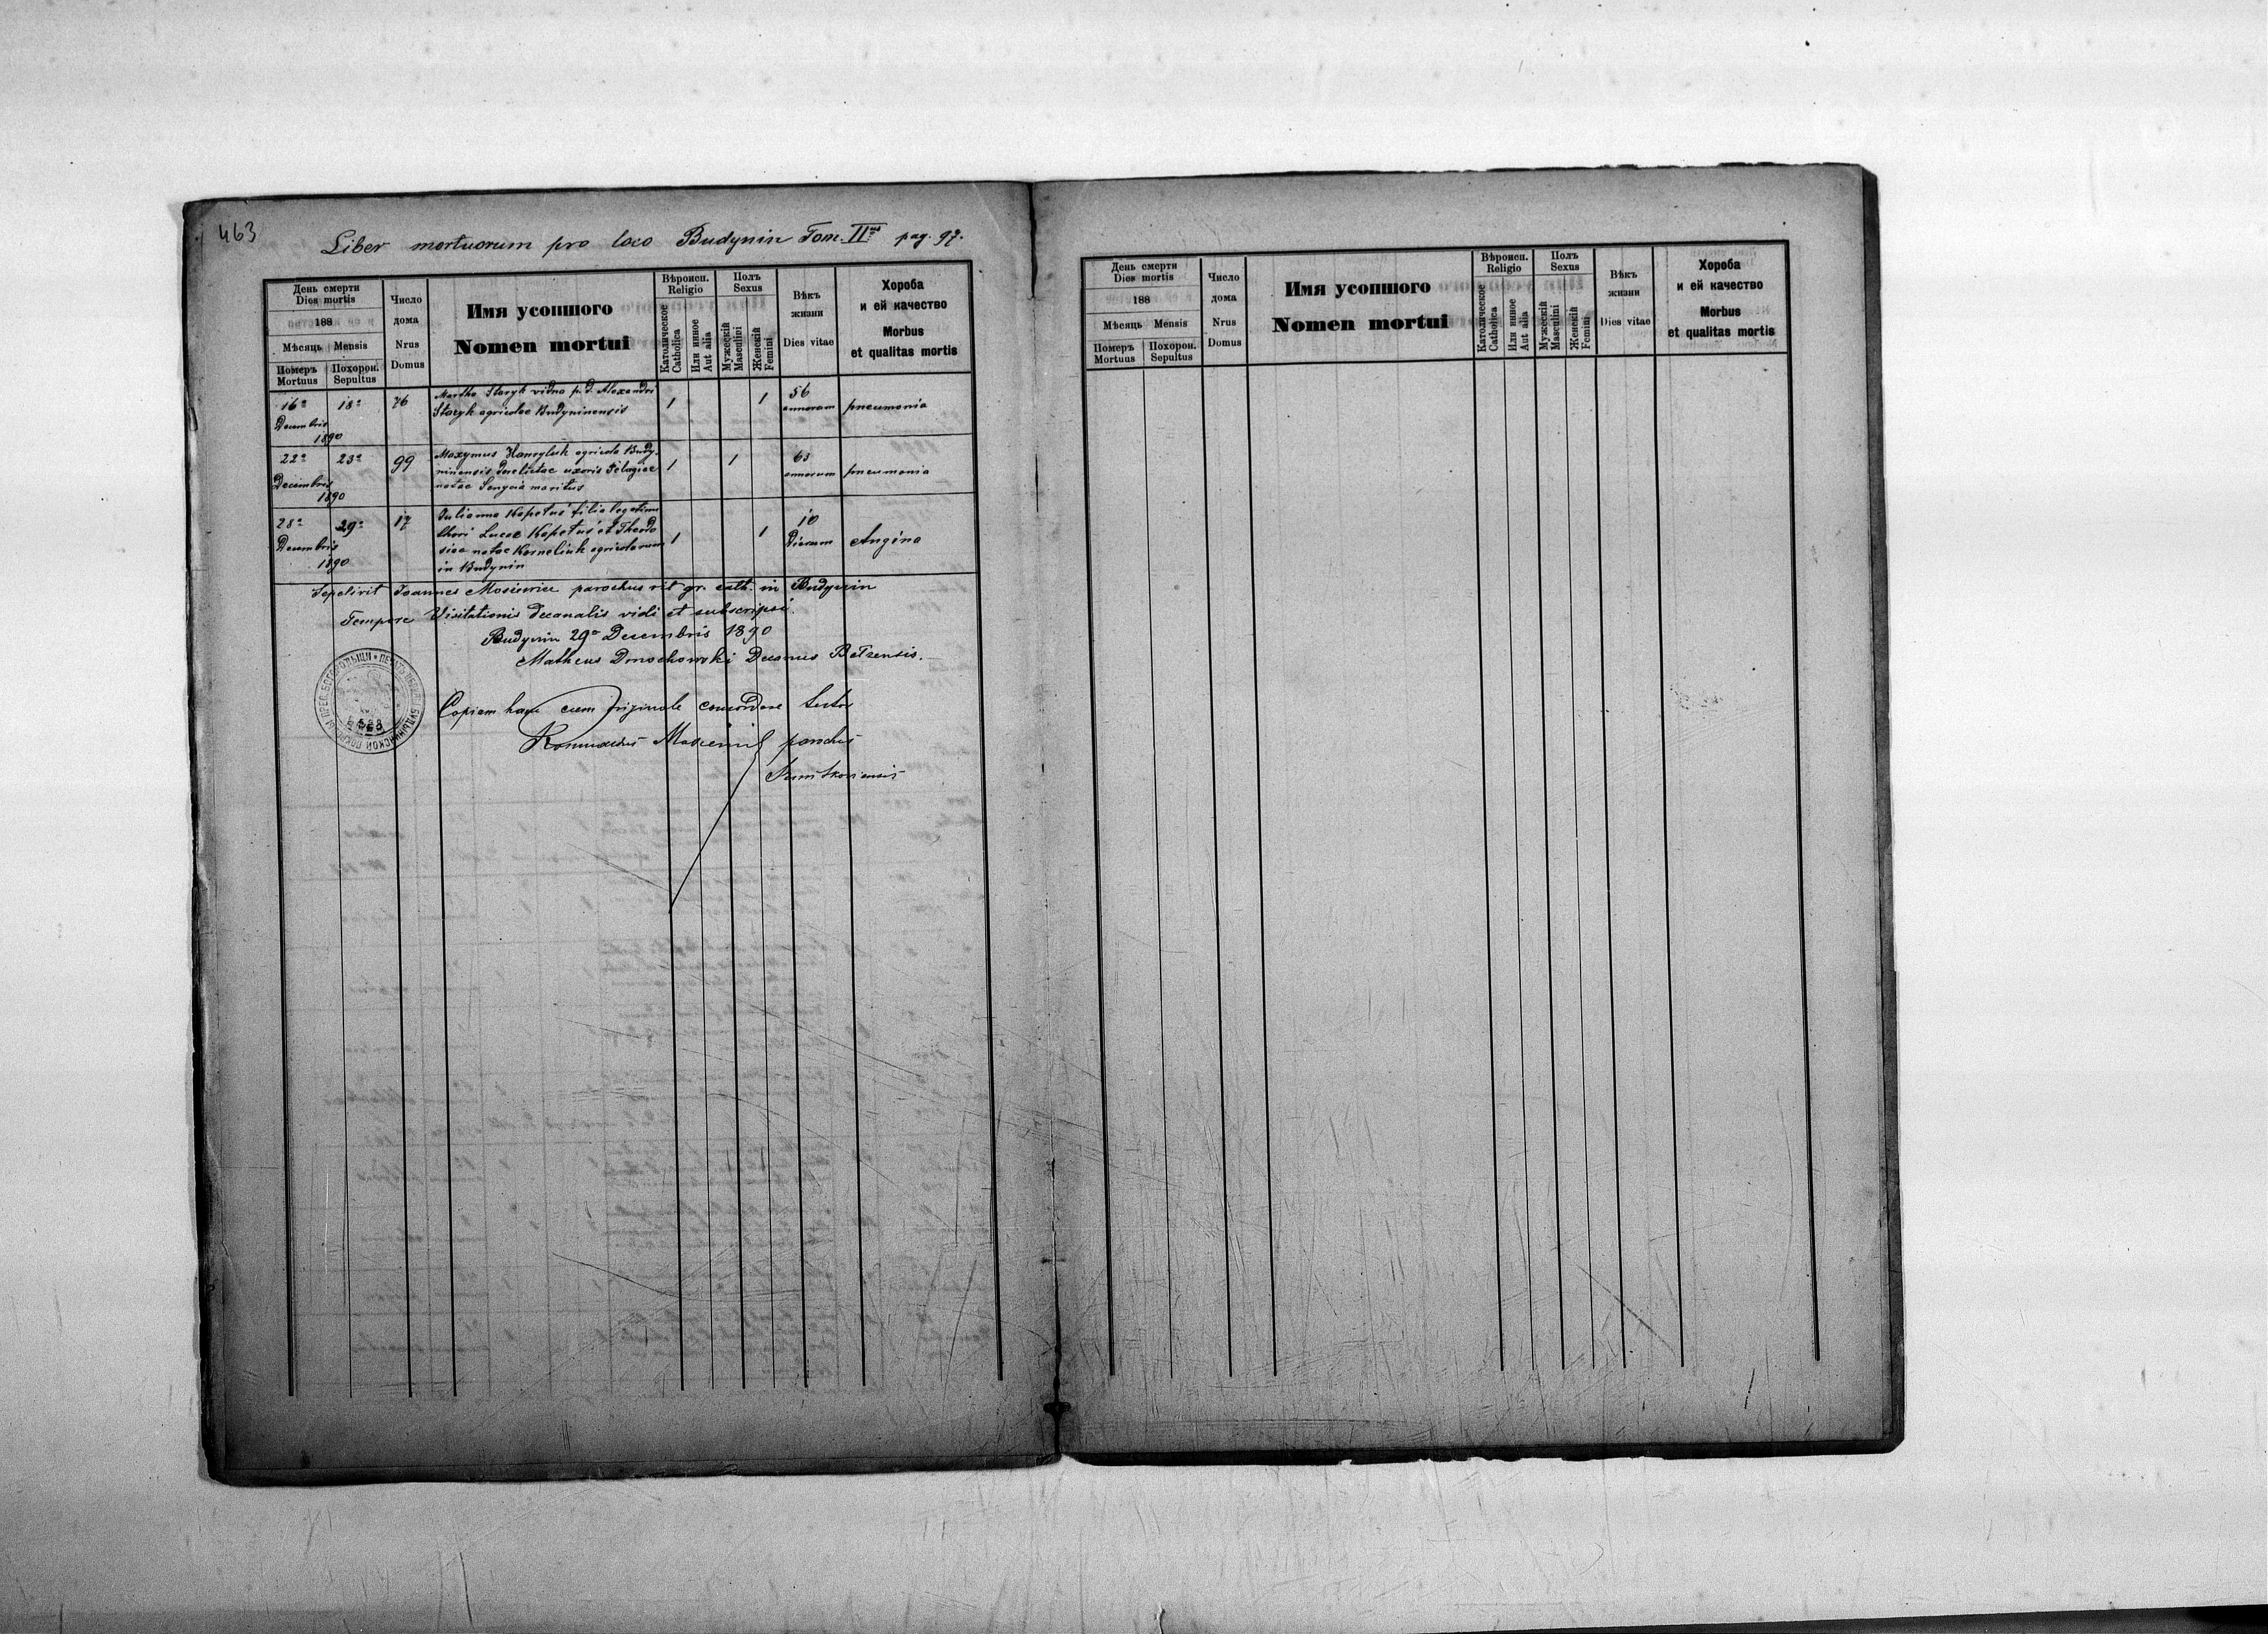 463
Liber mortuorum pro loco Budynin Tom. II us pag. 97.
День смерти
Dies mortis
188
Мѣсяць Mensis
Померъ Mortuus
Похорон. Sepultus
Число дома
Nrus Domus
Имя усопшого
Nomen mortui
Вѣроисп.
Religio
Католическое
Catholica
Или инное
Aut alia
Полъ
Sexus
Мужескій
Masculini
Женскій
Femini
Вѣкъ жизни
Dies vitae
Хороба
и ей качество
Morbus
et qualitas mortis
16a 18a 76 Martha Staryk vidua p. d. Alexandri 1 1 56
Decembris Staryk agricolae Budyninensis annorum pneumonia
1890
22a 23a 99 Maxymus agricola Budy- 1 1 63
Decembris ninensis derelictae uxoris Pelagiae annorum pneumonia
1890 natae maritus
28a 29a 17 Julianna Kopetus filia legitimi 1 1 10
Decembris thori Lucae Kopetus et Theodo dierum Angina
1890 siae natae Korneliuk agricolarum
in Budynin
Sepelivit Joannes Mosiewicz parochus rit. gr. cath. in Budynin
Tempore Visitationis decanalis vidi et subscripsi.
Budynin 29a Decembris 1890
Matheus Dmochowski Decanus Belzensis.
Copiam hanc cum originale concordare testor
parochus
День смерти
Dies mortis
188
Мѣсяць Mensis
Померъ Mortuus
Похорон. Sepultus
Число дома
Nrus Domus
Имя усопшого
Nomen mortui
Вѣроисп.
Religio
Католическое
Catholica
Или инное
Aut alia
Полъ
Sexus
Мужескій
Masculini
Женскій
Femini
Вѣкъ жизни
Dies vitae
Хороба
и ей качество
Morbus
et qualitas mortis